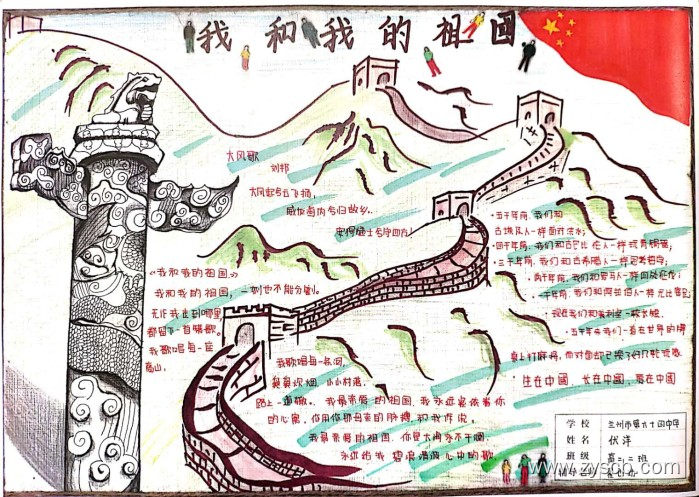 我和我的祖国
大风歌
刘邦
大风起兮云飞扬,
威加海内兮归故乡。
安得猛士兮守四方!
《我和我的祖国》
我和我的祖国,一刻也不能分割。
无论我走到哪里
都留下一首赞歌。
我歌唱每一座
高山,
我歌唱每一条河
袅袅炊烟,小小村落,
路上一道辙。我最亲爱的祖国,我永远紧依着你
的心窝,你用你那母亲的脉搏,和我诉说。
我最亲爱的祖国,你是大海永不干涸
永远给我 碧浪清波 心中的歌
·五千年前,我们和
古埃及人一样面对洪水;
·四千年前,我们和古巴比伦人一样玩青铜器;
·三千年前,我们和古希腊人一样思考哲学;
·两千年前,我们和罗马人一样四处征伐;
·一千年前,我们和阿拉伯人一样无比富足
·现在我们和美利坚一较长短
·五千年来我们一直在世界的牌
桌上打麻将,而对面却已换了好几轮玩家
生在中國 长在中國,喜在中國
学校 兰州市第六十四中学
姓名 伏洋
班级 高二、二班
www.zyscb.com